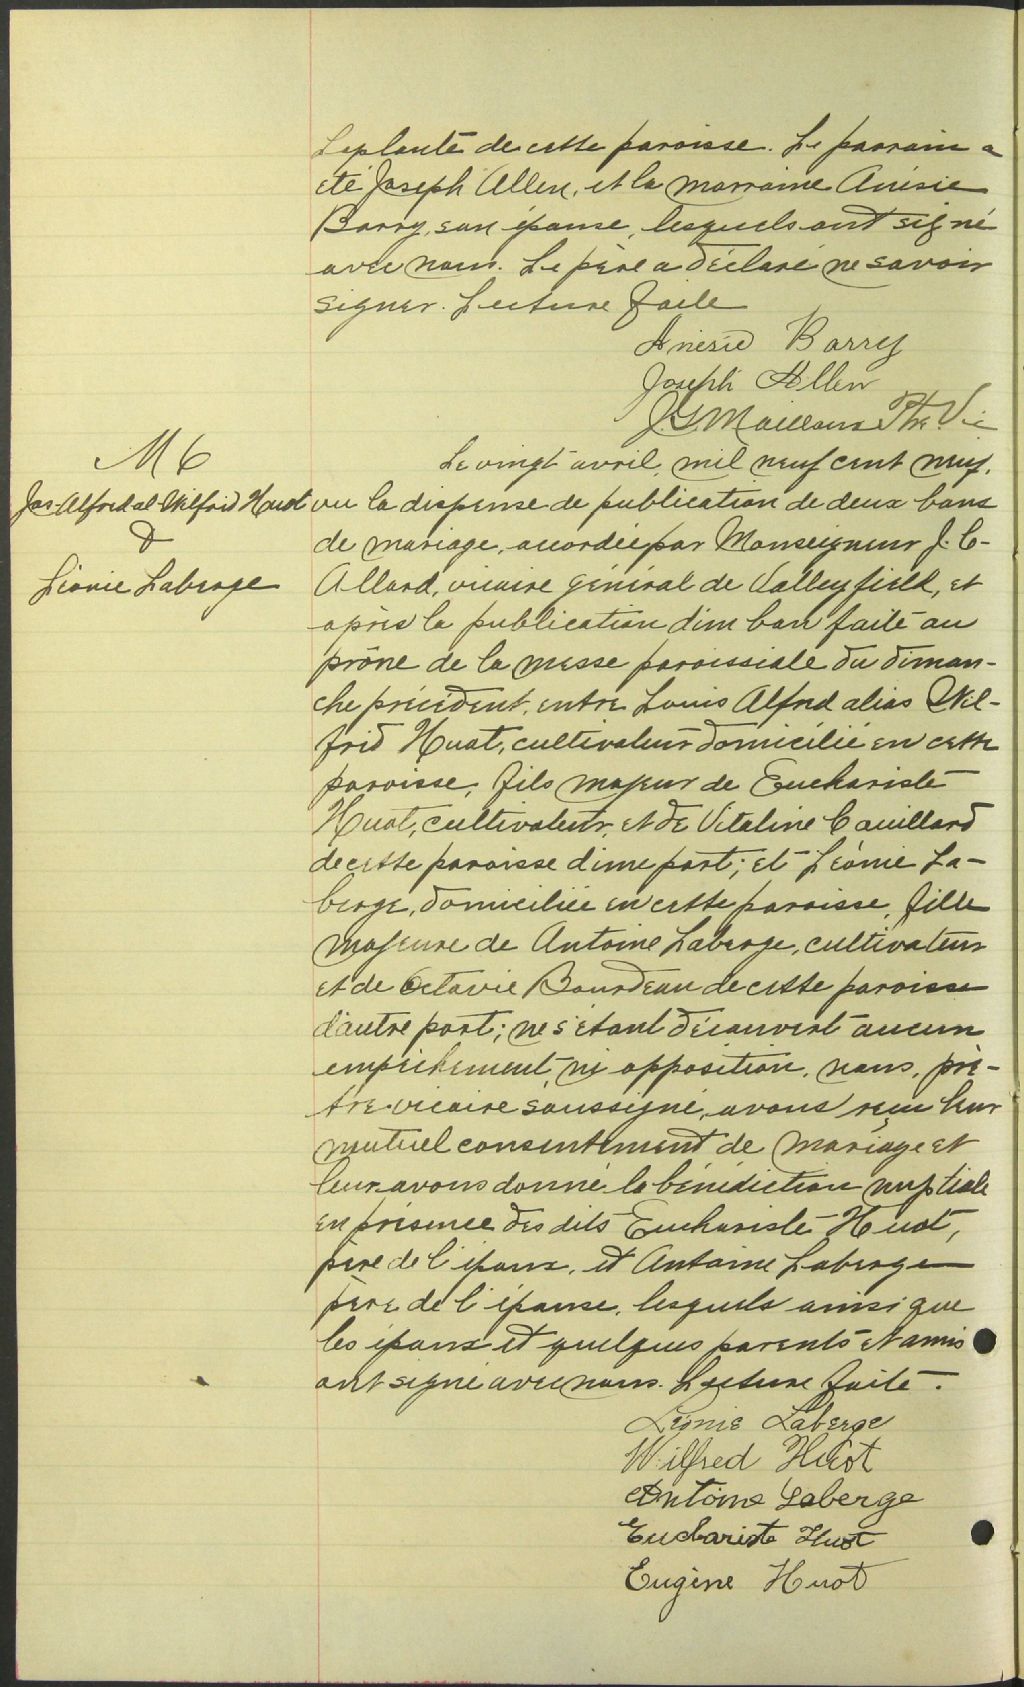 Laplante de cette paroisse. Le parrain a
été Joseph Allen, et la marraine Anésie
Barry, son épouse, lesquels ont signé
avec nous. Le père a déclaré ne savoir
signer. Lecture faite
Anésie Barry
Joseph Allen
Ptre Vic
M 6
Jos Alfred al Wilfrid Huot
&
Léonie Laberge
Le vingt avril, mil neuf cent neuf,
vu la dispense de publication de deux bans
de mariage, accordée par Monseigneur J. C.
Allard, vicaire général de Valleyfield, et
après la publication d'un ban faite au
prône de la messe paroissiale du diman-
che précédent, entre Louis Alfred alias Wil-
frid Huot, cultivateur domicilié en cette
paroisse, fils majeur de Euchariste
Huot, cultivateur, et de Vitaline Couillard
de cette paroisse d'une part; et Léonie La-
berge, domiciliée en cette paroisse, fille
majeure de Antoine Laberge, cultivateur
et de Octavie Bourdeau de cette paroisse
d'autre part; ne s'étant découvert aucun
empêchement, ni opposition, nous, prê-
tre-vicaire soussigné, avons reçu leur
mutuel consentement de mariage et
leur avons donné la bénédiction nuptiale
en présence des dits Euchariste Huot,
père de l'époux, et Antoine Laberge
père de l'épouse, lesquels ainsi que
les époux et quelques parents et amis
ont signé avec nous. Lecture faite.
Léonie Laberge
Wilfred Huot
Antoine Laberge
Euchariste Huot
Eugène Huot